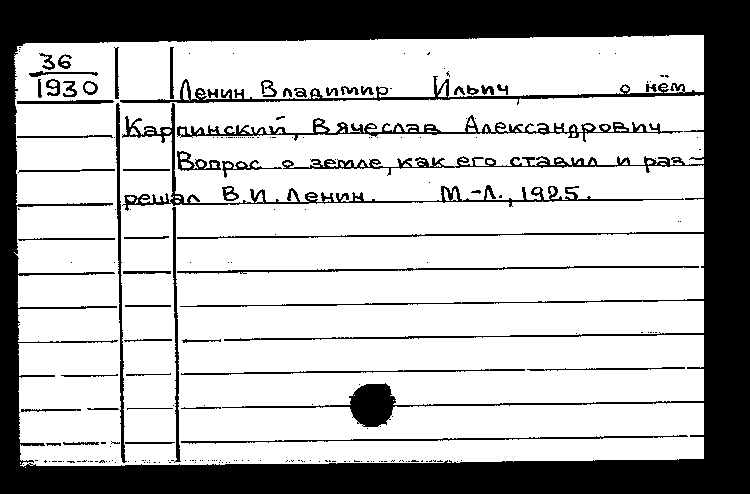 36
1930
Ленин. Владимир Ильич, о нём.
Карпинский, Вячеслав Александрович
Вопрос о земле, как его ставил и раз-
решал В.И. Ленин. М.-Л., 1925.